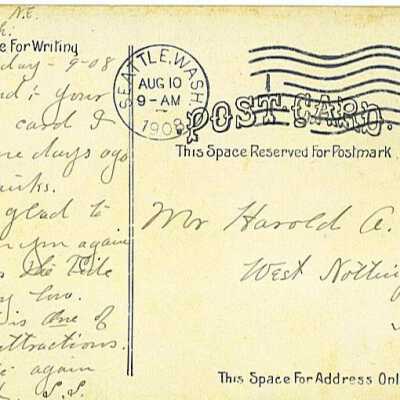 N.E.
e For Writing
day - 9-08
your
card I
days ago
glad to
again
the Tide
low.
is one of
attractions.
again
SEATTLE, WASH.
AUG 10
9-AM
1908
POST CARD.
This Space Reserved For Postmark.
Mr Harold A.
West Notting
This Space For Address Onl